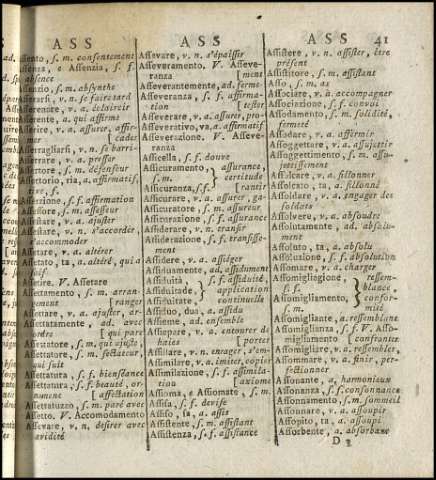 ASS
ASS
ASS
41
Assento, s. m. consentement
Assenza, e Assenzia, s. f.
absence
Assenzio, s. m. absynthe
v. n. se faire tard
v. a. éclaircir
a. qui affirme
Asserire, v. a. assurer, affir-
mer
Asserragliarsi, v. n. se barri-
[cader
v. a. presser
s. m. défenseur
Assertorio, ria, a. affirmatif,
Asserzione, s. f. affirmation
Assessore, s. m. assesseur
v. a. ajuster
Assestare, v. n. s'accorder,
s'accommoder
v. a. altérer
Assetato, ta, a. altéré, qui a
soif
Assetire. V. Assetare
Assettamento, s. m. arran-
gement [ranger
Assettare, v. a. ajuster, ar-
Assettatamente, ad. avec
ordre [qui pare
Assettatore, s. m. qui ajuste,
s. m. sectateur,
qui suit
Assettatura, s. f. bienséance
s. f. beauté, or-
nement [affectation
Assettatuzzo, s. m. paré avec
Assetto. V. Accomodamento
Assevare, v. n. désirer avec
avidité
Assevare, v. n. s'épaissir
Asseveramento. V. Asseve-
ranza [ment
Asseverantemente, ad. ferme-
Asseveranza, s. f. affirma-
tion [tester
Asseverare, v. a. assurer, pro-
Asseverativo, va, a. affirmatif
Asseverazione. V. Asseve-
ranza
Assicella, s. f. douve
Assicuramento, assurance,
s. m. certitude
Assicuranza, s. f. [rantir
Assicurare, v. a. assurer, ga-
Assicuratore, s. m. assureur
Assicurazione, s. f. assurance
Assiderare, v. n. transir
Assiderazione, s. f. transisse-
ment
Assidere, v. a. assiéger
Assiduamente, ad. assidument
Assiduità, s. f. assiduité,
Assiduitade, application
Assiduitate, continuelle
Assiduo, dua, a. assidu
Assieme, ad. ensemble
Assiepare, v. a. entourer de
haies [porter
Assillare, v. n. enrager, s'em-
Assimilare, v. a. imiter, copier
Assimilazione, s. f. assimila-
tion [axiome
Assioma, e Assiomate, s. m.
Assisa, s. f. devise
Assiso, sa, a. assis
Assistente, s. m. assistant
Assistenza, s. f. assistance
Assistere, v. n. assister, être
présent
Assistitore, s. m. assistant
Asso, s. m. as
Associare, v. a. accompagner
Associazione, s. f. convoi
Assodamento, s. m. solidité,
fermeté
Assodare, v. a. affirmir
Assoggettare, v. a. assujettir
Assoggettimento, s. m. assu-
jettissement
Assolcare, v. a. sillonner
Assolcato, ta, a. sillonné
Assoldare, v. a. engager des
soldats
Assolvere, v. a. absoudre
Assolutamente, ad. absolu-
ment
Assoluto, ta, a. absolu
Assoluzione, s. f. absolution
Assomare, v. a. charger
Assomigliagione, s. f. ressem-
blance,
Assomigliamento, confor-
s. m. mité
Assomigliante, a. ressemblant
Assomiglianza, s. f. V. Asso-
migliamento [confronter
Assomigliare, v. a. ressembler,
Assommare, v. a. finir, per-
fectionner
Assonante, a. harmonieux
Assonanza, s. f. consonnance
Assonnamento, s. m. sommeil
Assonnare, v. a. assoupir
Assopito, ta, a. assoupi
Assorbente, a. absorbant
D 3